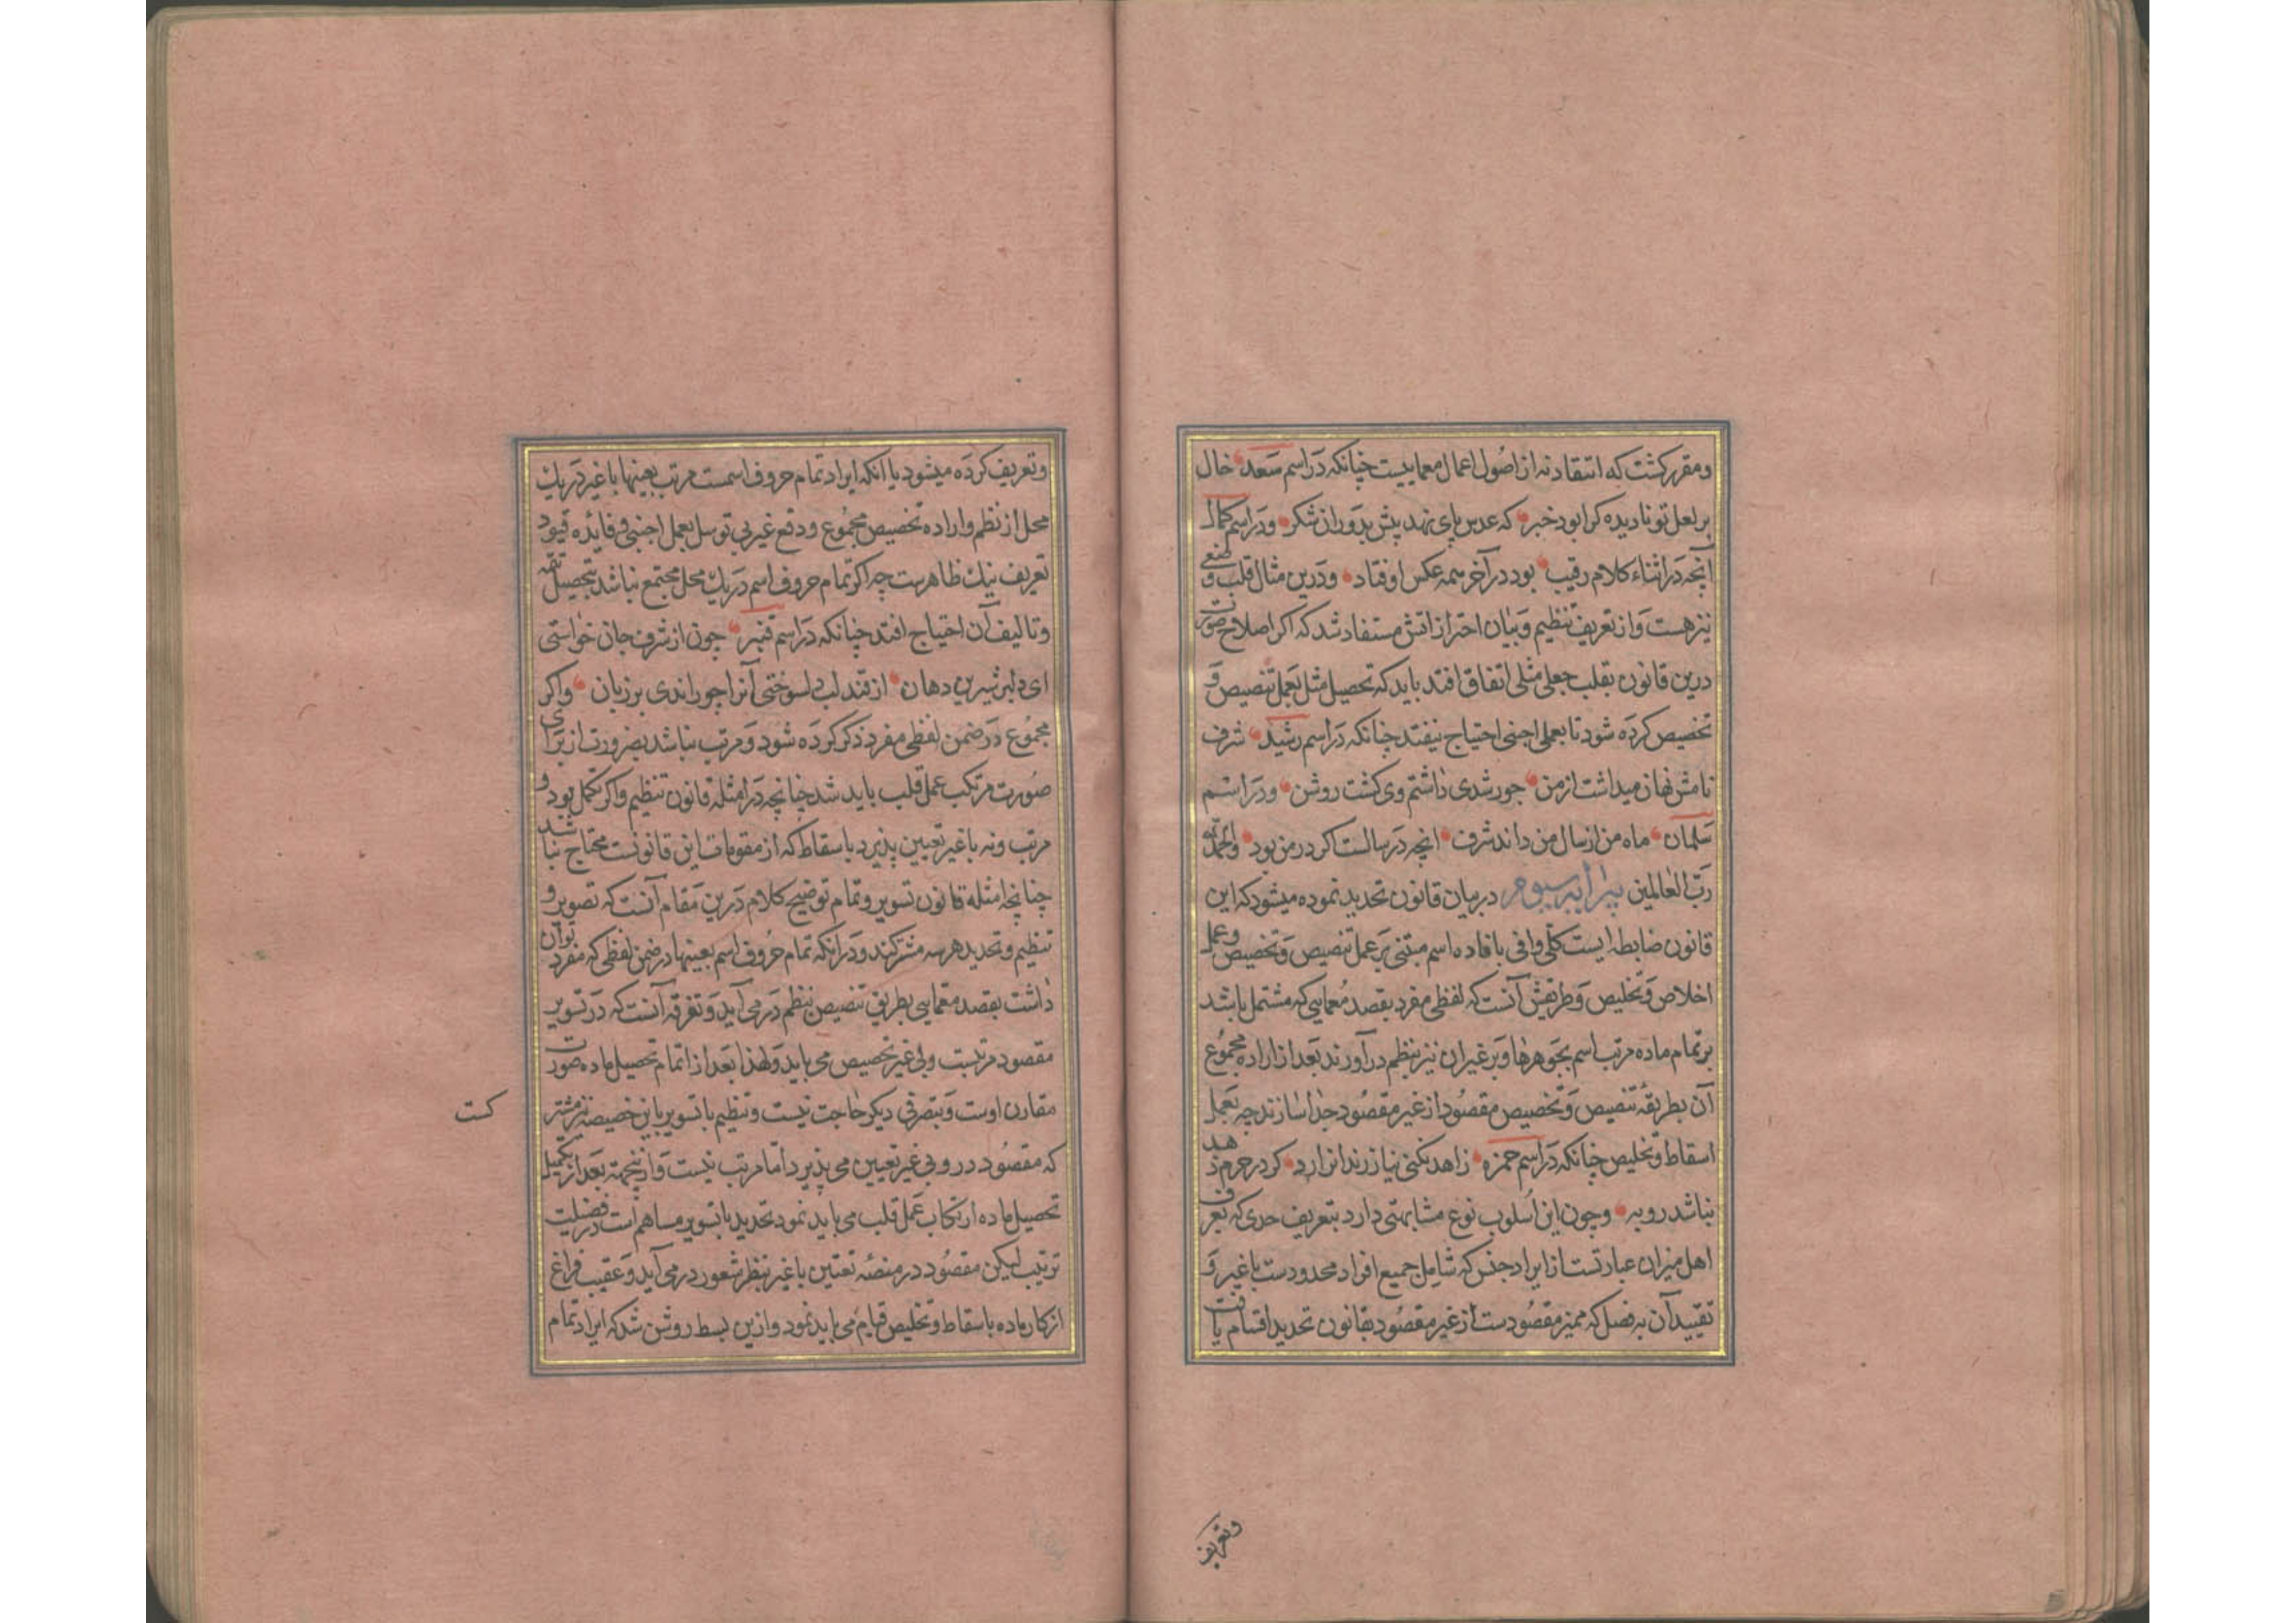 ومقرر کشت که انتقاد نه از اصول اعمال معماییست چنانکه در اسم سعد خال
بر لعل تو نادیده کرا بود خبر که عدس پای نهد پیش بدور از شکر ودر اسم کمال
آنچه در اثناء کلام رقیب بود در آخر سمه عکس اوفتاد ودرین مثال قلب وضعی
نیز هست واز تعریف تنظیم وبیان احترازاتش مستفاد شد که اکر اصلاح صورت
درین قانون بقلب جعلی مثلی اتفاق افتد باید که تحصیل مثل بعمل تنصیص و
تخصیص کرده شود تا بعملی اجنبی احتیاج نیفتد چنانکه در اسم رشید شرف
نامش نهان میداشت از من جو رشدی داشتم وی کشت روشن ودر اسم
سلمان ماه من ارسال من داند شرف انچه در رسالست اکر در من بود والحمد لله
رب العالمین پیرایه سیوم در بیان قانون تحدید نموده میشود که این
قانون ضابطه ایست کلی وافی بافاده اسم مبتنی بر عمل تنصیص وتخصیص وعمل
اخلاص وتخلیص وطریقش آنست که لفظی مفرد بقصد معمایی که مشتمل باشد
بر تمام ماده مرتب اسم بجوهرها وبر غیر ان نیز بنظم درآورند بعد از اراده مجموع
آن بطریقه تنصیص وتخصیص مقصود از غیر مقصود جدا سازند چه بعمل
اسقاط وتخلیص چنانکه در اسم حمزه زاهد نکنی نیاز رندانرا رد کر در حرم زهد
نباشد رو به وچون این اسلوب نوع مشابهتی دارد بتعریف حدی که تعرف
اهل میزان عبارتست از ایراد جنس که شامل جمیع افراد محدودست با غیر و
تقیید آن به فصل که ممیز مقصودست از غیر مقصود بقانون تحدید اقتسام یافت
وتعریف
وتعریف کرده میشود یا انکه ایراد تمام حروف اسمست مرتب بعینها با غیر در یک
محل از نظم واراده تخصیص مجموع ودفع غیر بی توسل بعمل اجنبی وفائده قیود
تعریف نیک ظاهرست چه اکر تمام حروف اسم در یک محل مجتمع نباشد بتحصیل تتمه
وتالیف آن احتیاج افتد چنانکه در اسم قنبر چون از شرف جان خواستی
ای دلبر شیرین دهان از قند لب دلسوختی آنرا چو راندی بر زبان واکر
مجموع در ضمن لفظی مفرد ذکر کرده شود ومرتب نباشد بضرورت از برای
صورت مرتکب عمل قلب باید شد چنانچه در امثله قانون تنظیم واکر تکمل بود و
مرتب ونه با غیر تعیین پذیرد باسقاط که از مقومات این قانونست محتاج نباشد
چنانچه امثله قانون تسویر وتمام توضیح کلام درین مقام آنست که تصویر و
تنظیم وتحدید هر سه مشترکند در انکه تمام حروف اسم بعینها در ضمن لفظی که مفرد توان
داشت بقصد معمایی بطریق تنصیص بنظم در می آید وتفرقه آنست که در تسویر
مقصود مرتبست وبی غیر تخصیص می یابد ولهذا بعد از اتمام تحصیل ماده صورت
مقارن اوست وبتصرفی دیکر حاجت نیست وتنظیم با تسویر باین خصیصه نیز مشتر
کست
که مقصود درو بی غیر تعیین می پذیرد اما مرتب نیست وازینجهة بعد از تکمیل
تحصیل ماده ارتکاب عمل قلب می باید نمود تحدید با تسویر مساهم است در فضیلت
ترتیب لیکن مقصود در منصه تعیین با غیر بنظر شعور در می آید وعقیب فراغ
از کار ماده باسقاط وتخلیص قیام می باید نمود وازین بسط روشن شد که ایراد تمام